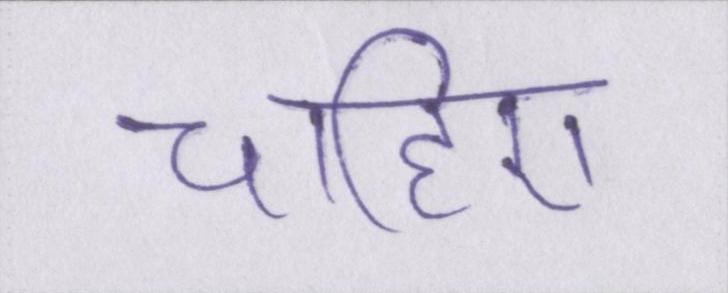 चाहिए